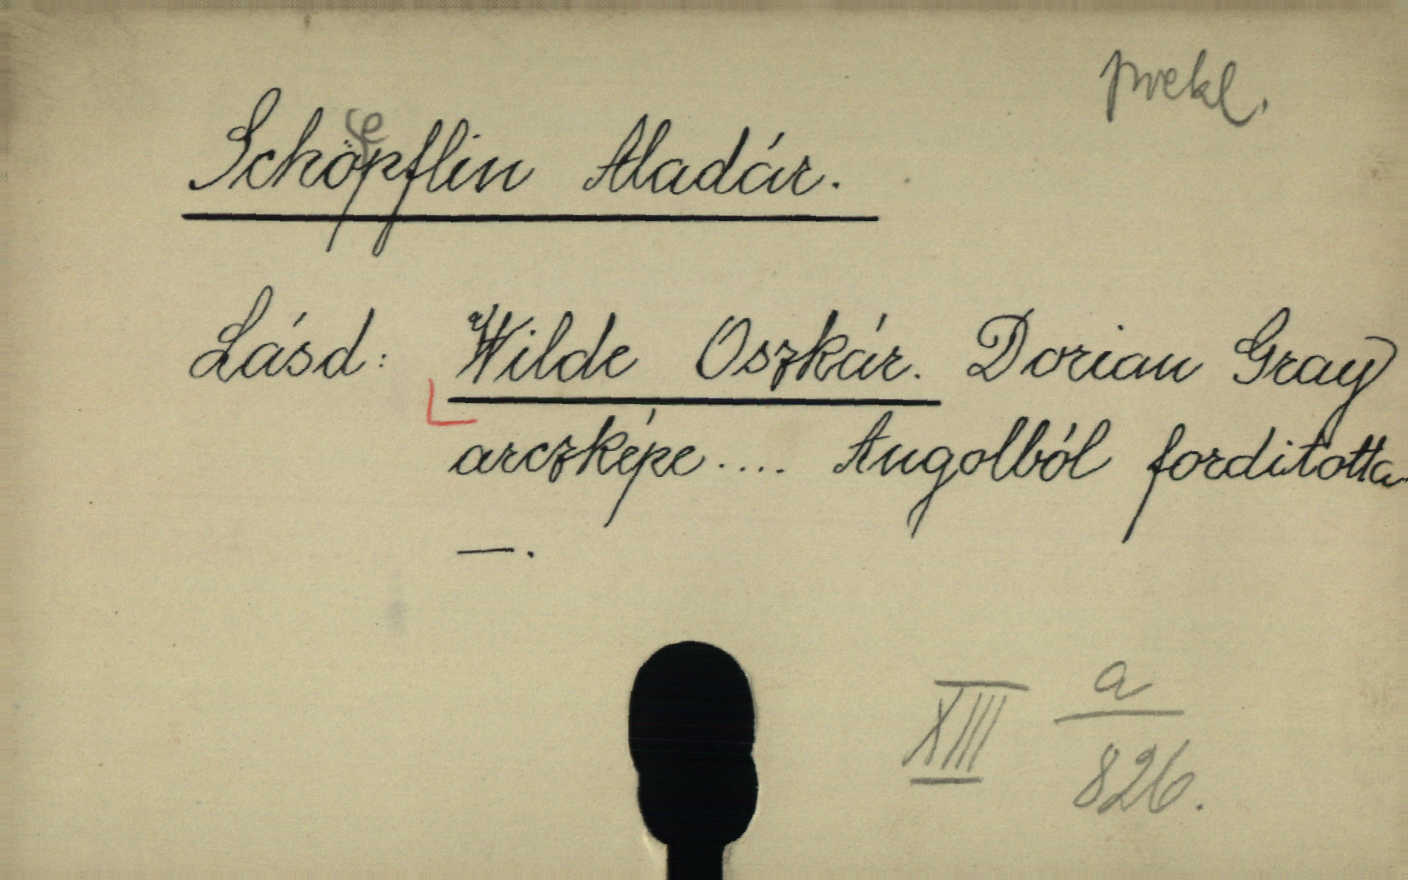 prekl.
Schöpflin Aladár.
Lásd: Wilde Oszkár. Dorian Gray
arczképe.... Angolból forditotta
—.
XIII a/826.